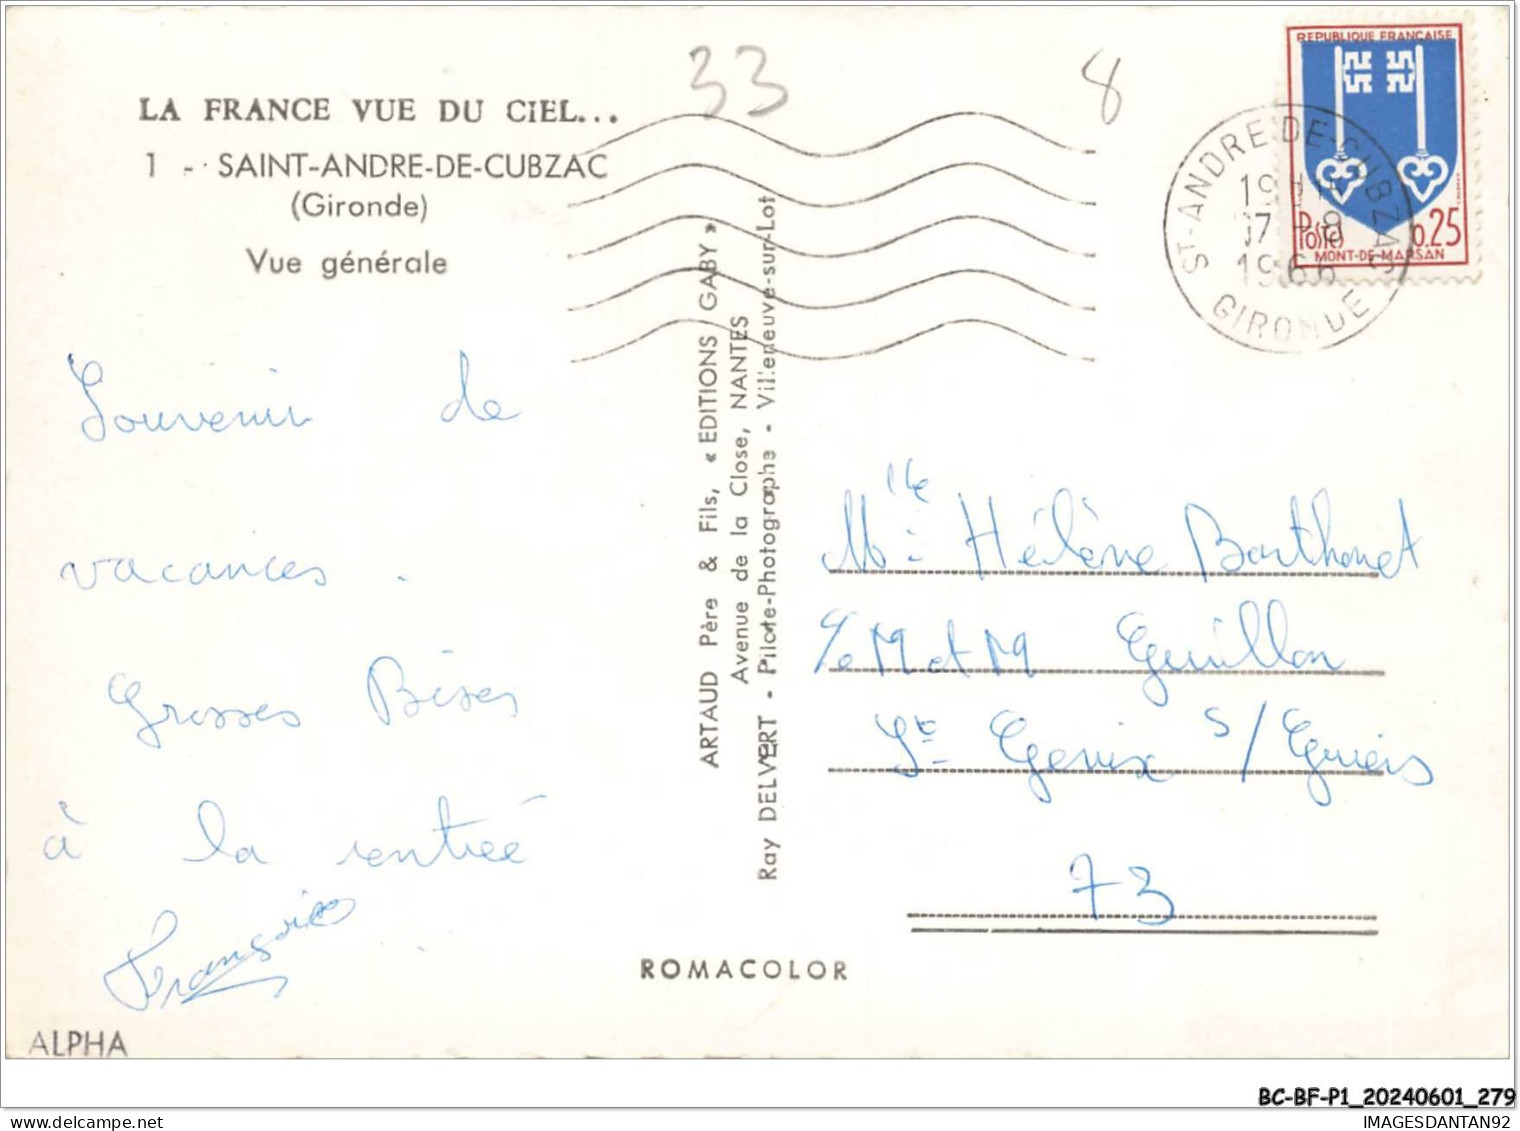 33
8
LA FRANCE VUE DU CIEL...
1 - SAINT-ANDRE-DE-CUBZAC
(Gironde)
Vue générale
REPUBLIQUE FRANÇAISE
Postes 0.25
MONT-DE-MARSAN
ST-ANDRE-DE-CUBZAC
19H
17-8
1966
GIRONDE
Souvenir de
vacances.
Grosses Bises
à la rentrée
Françoise
ARTAUD Père & Fils, « EDITIONS GABY »
Avenue de la Close, NANTES
Ray DELVERT - Pilote-Photographe - Villeneuve-sur-Lot
Mlle Hélène Barthonet
c/o M et M Guillon
St Genix s/Guiers
73
ROMACOLOR
ALPHA
BC-BF-P1_20240601_279
IMAGESDANTAN92